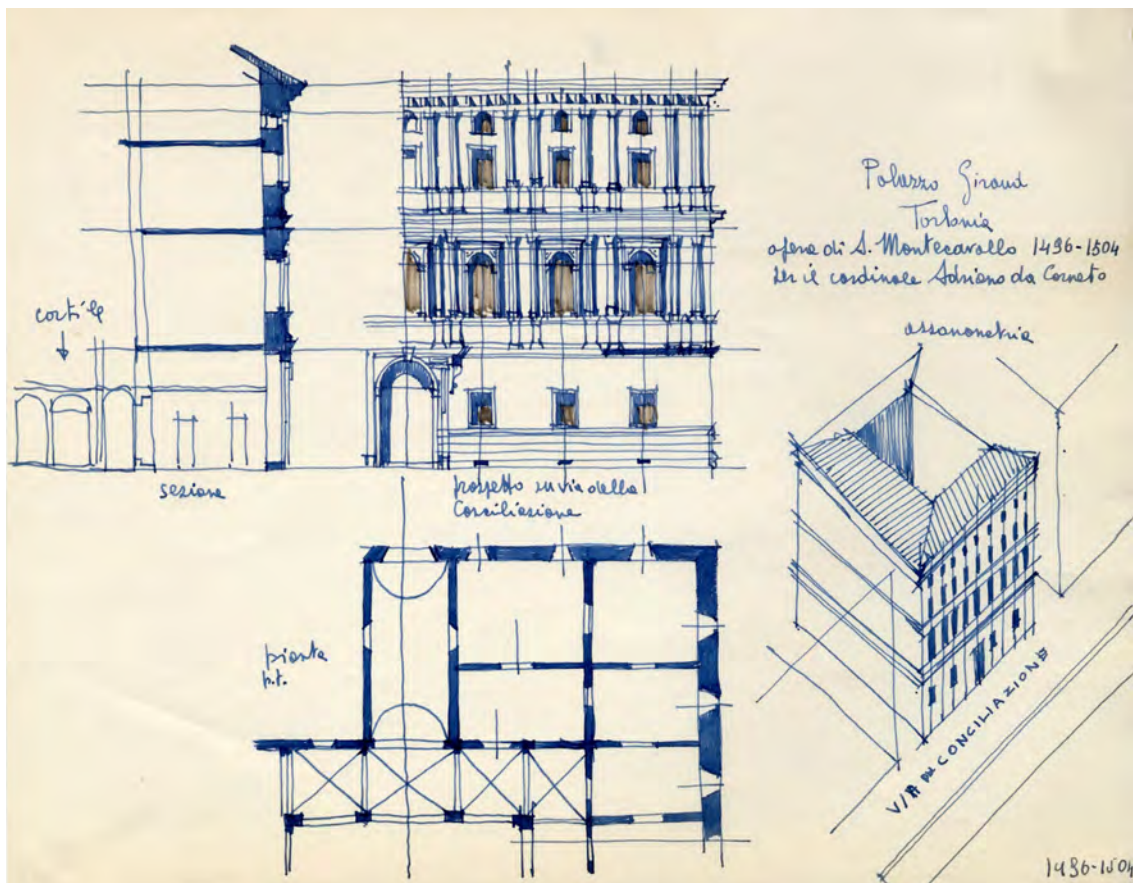 Palazzo Giraud
Torlonia
opera di S. Montecavallo 1496-1504
per il cardinale Adriano da Corneto
cortile
assonometria
sezione
prospetto su via della
Conciliazione
pianta
p.t.
VIA DEL CONCILIAZIONE
1496-1504